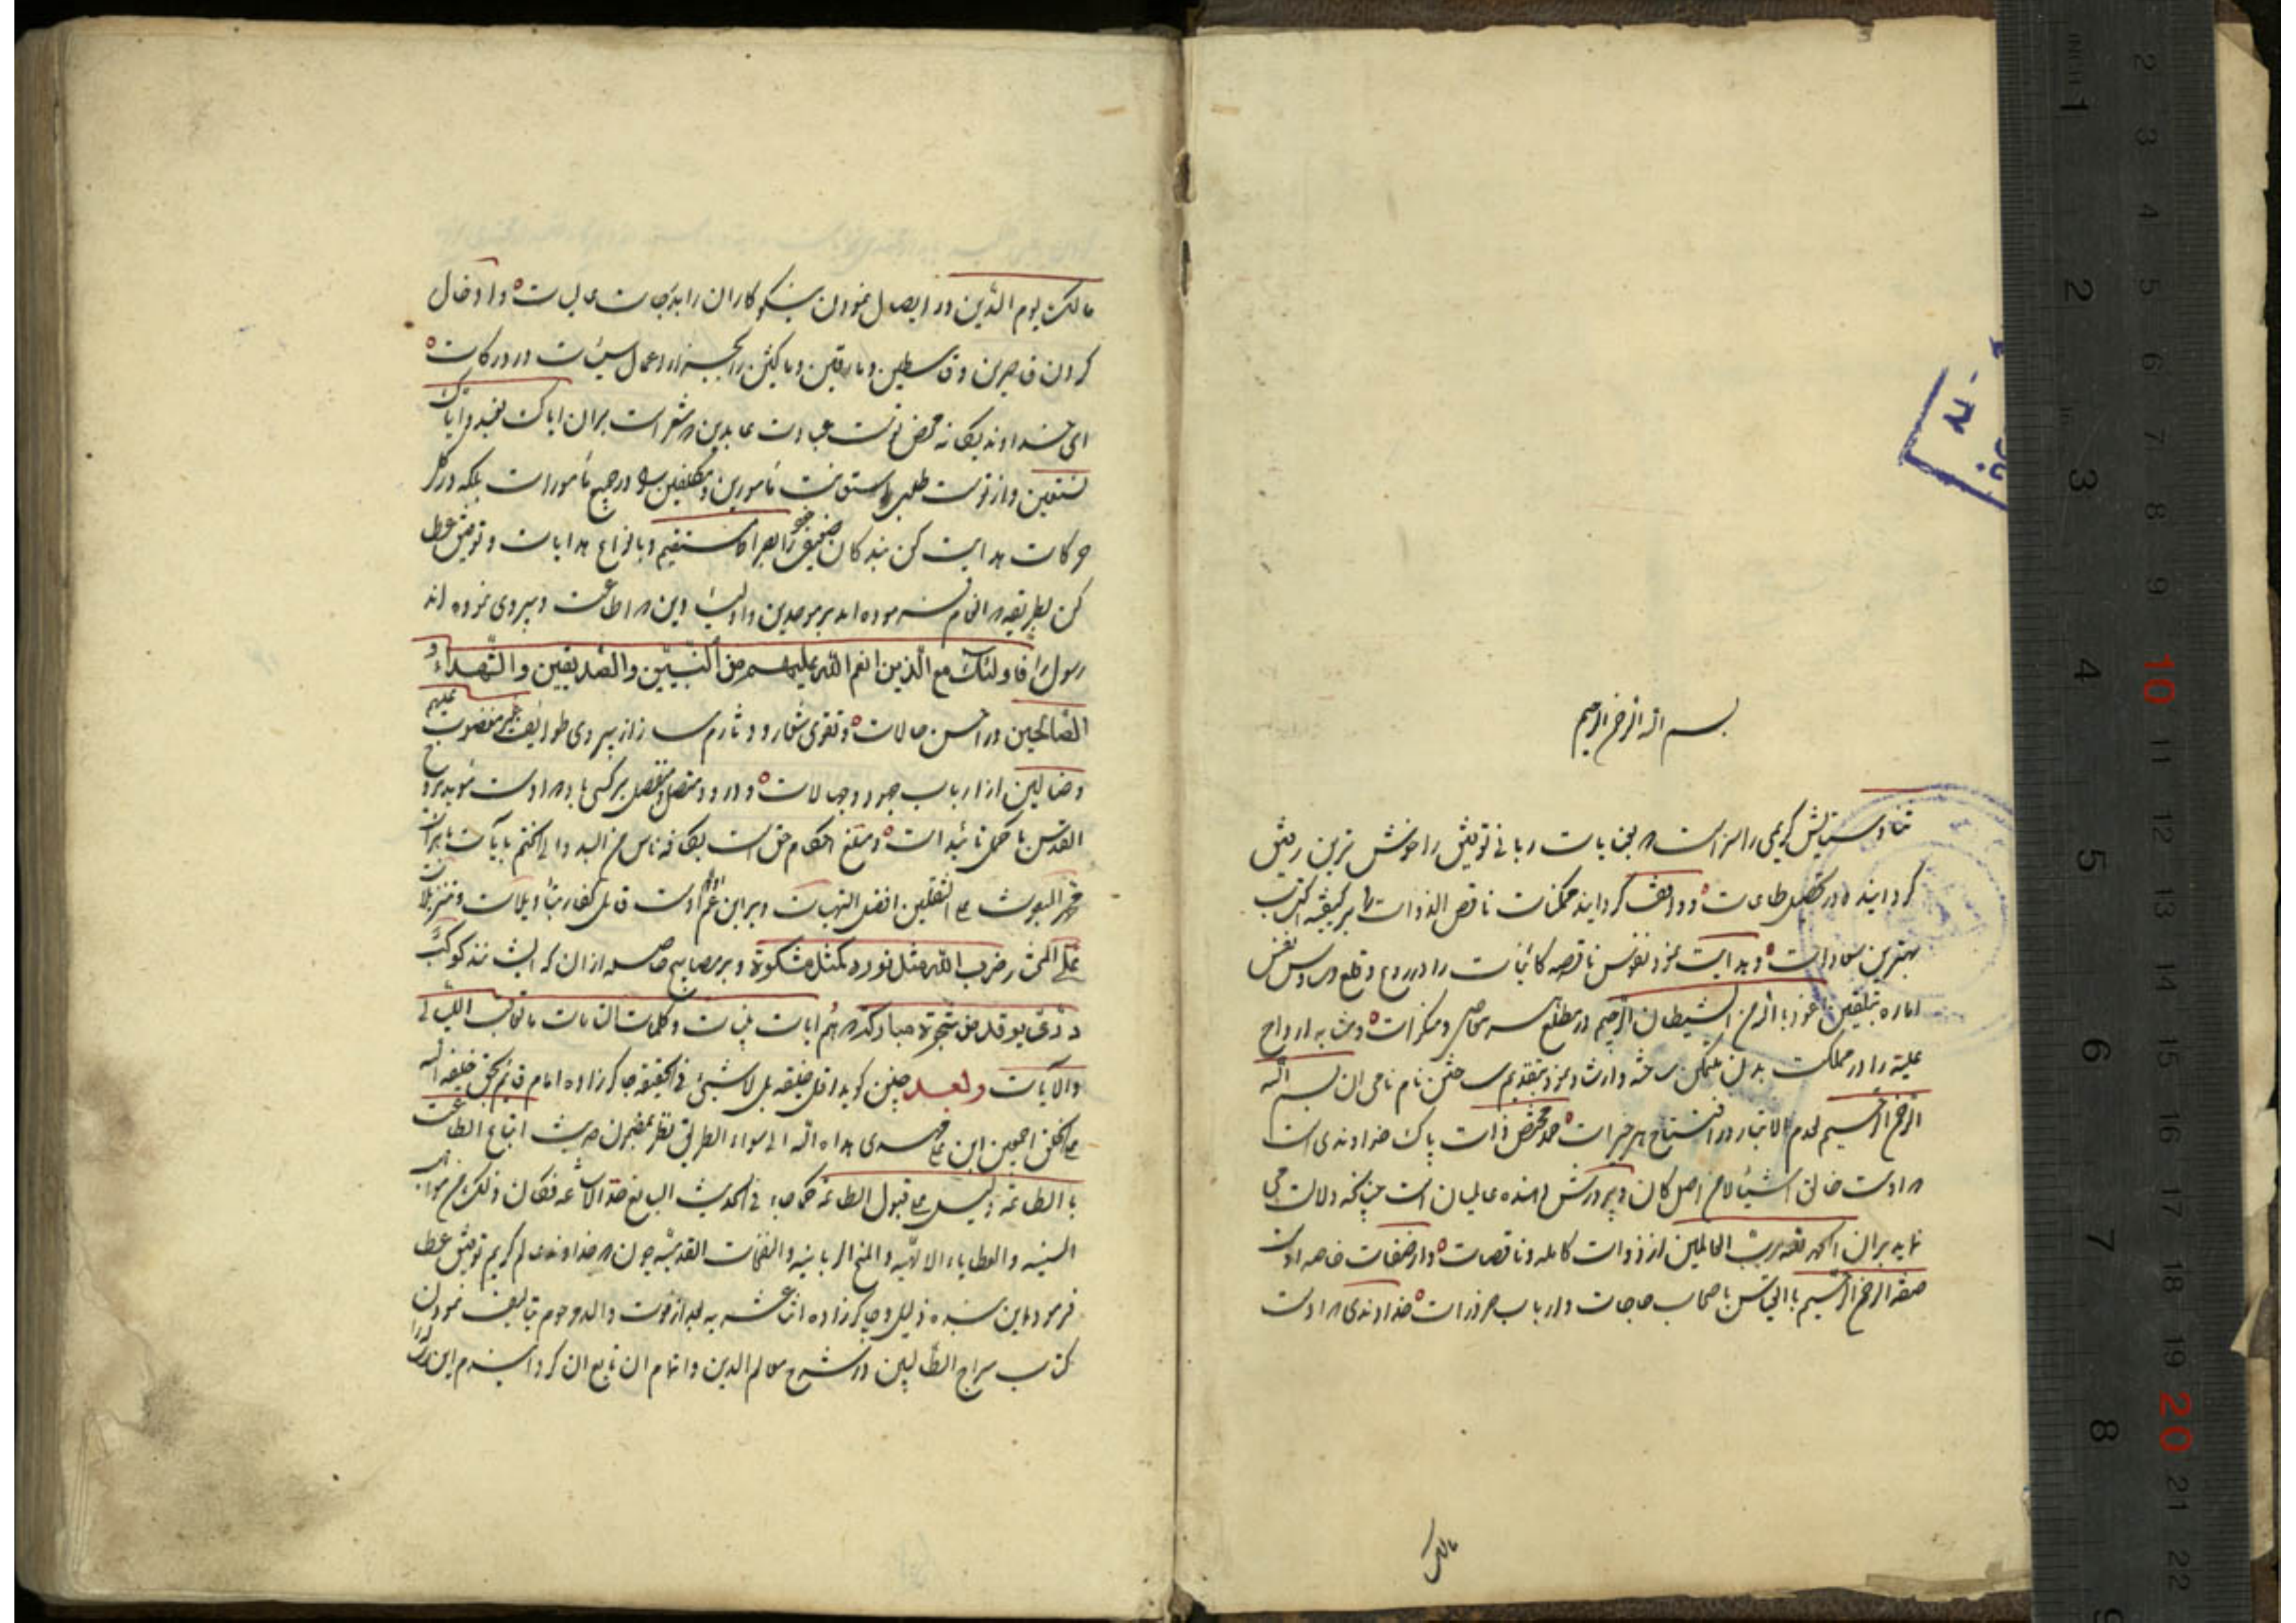 بسم الله الرحمن الرحیم
ثنا و ستایش کریمی را سزاست که بعنایات ربانی توفیق را خوش ترین رفیق
کردانیده در تحصیل طاعات و واقف کردانید ممکنات ناقص الذوات را بر کیفیة اکتساب
بهترین سعادات و هدایت نمود نفوس ناقصه کائنات را در ردع و قلع وساوس نفس
اماره بتلقین اعوذ بالله من الشیطان الرجیم در مطلع سر معاصی و منکرات و به ارواح
علیه را در مملکت بدن متمکن ساخته و ارشاد نمود بتقدیم ساختن نام نامی ان بسم الله
الرحمن الرحیم لدوم الابتدا در افتتاح هر خیرات حمد مختص ذات پاک خداوندی است
که اوست خالق اشیا لا من اصل کان و پرورش دهنده عالمیان است چنانچه دلالت می
نماید بران الحمد لله رب العالمین از ذوات کامله و ناقصات و از صفات خاصه اوست
صفة الرحمن الرحیم با التماس اصحاب حاجات و ارباب ضرورات خداوندی که اوست
مالک
مالک یوم الدین در ایصال نمودن نیکوکاران را بدرجات عالیات و ادخال
کردن قاصرین و قاسطین و مارقین و ناکثین را بجزاء اعمال سیئات در درکات
ای خداوند یکانه محض تو است عبادت عابدین که مشعر است بران ایاک نعبد و ایاک
نستعین و از تو است طلب استعانت مأمورین و مکلفین در جمیع مأمورات بلکه در کل
حرکات هدایت کن بندکان ضعیف خود را بصراط مستقیم و بانواع هدایات و توفیق عطا
کن بطریقه که انعام فرموده اند بر موحدین و اولیاء دین که اطاعت و پیروی نموده اند
رسول را فاولئک مع الذین انعم الله علیهم من النبیین والصدیقین والشهداء و
الصالحین در احسن حالات و تقوی شعار و دثارم ساز از پیروی طوایف غیر مغضوب علیهم
و ضالین از ارباب جور و جهالات و درود متصل و منفصل بر کسی باد که اوست مؤید بروح
القدس با کمل تائیدات و مبلغ احکام حق است بکافه ناس من البدو الی الختم بایات باهرات
محمد المبعوث علی الثقلین افضل التحیات و بر ابن عم او که اوست قاتل کفار بتأویلات و تنزیلات
علی المشار ضرب الله مثل نوره کمثل مشکوة و بر مصابیح حاصله ازان که ایشانند کوکب
دری یوقد من شجرة مبارکه که هم ایات بینات و کلمات التامات ما تعاقب اللیالی
والآیات وبعد چنین کوید اقل خلیقه بل لا شیئ فی الحقیقه چاکرزاده امام قائم بحق خلیفة الله
علی الخلق اجمعین ابن علی هداه الله الی سواء الطریق نظر بمضمون حدیث اتباع الطاعت
با الطاعة دلیل علی قبول الطاعة کما جاء فی الحدیث فکان ذلک من مواهب
السنیه والعطایاء الالهیه والمنح الربانیه والنفحات القدسیه چون که خداوند عالم کریم توفیق عطا
فرمود باین بنده ذلیل و چاکرزاده اثنا عشریه بعد از فوت والد مرحوم بتالیف نمودن
کتاب سراج الطالبین در شرح معالم الدین و اتمام ان تابع ان کردانیدم این